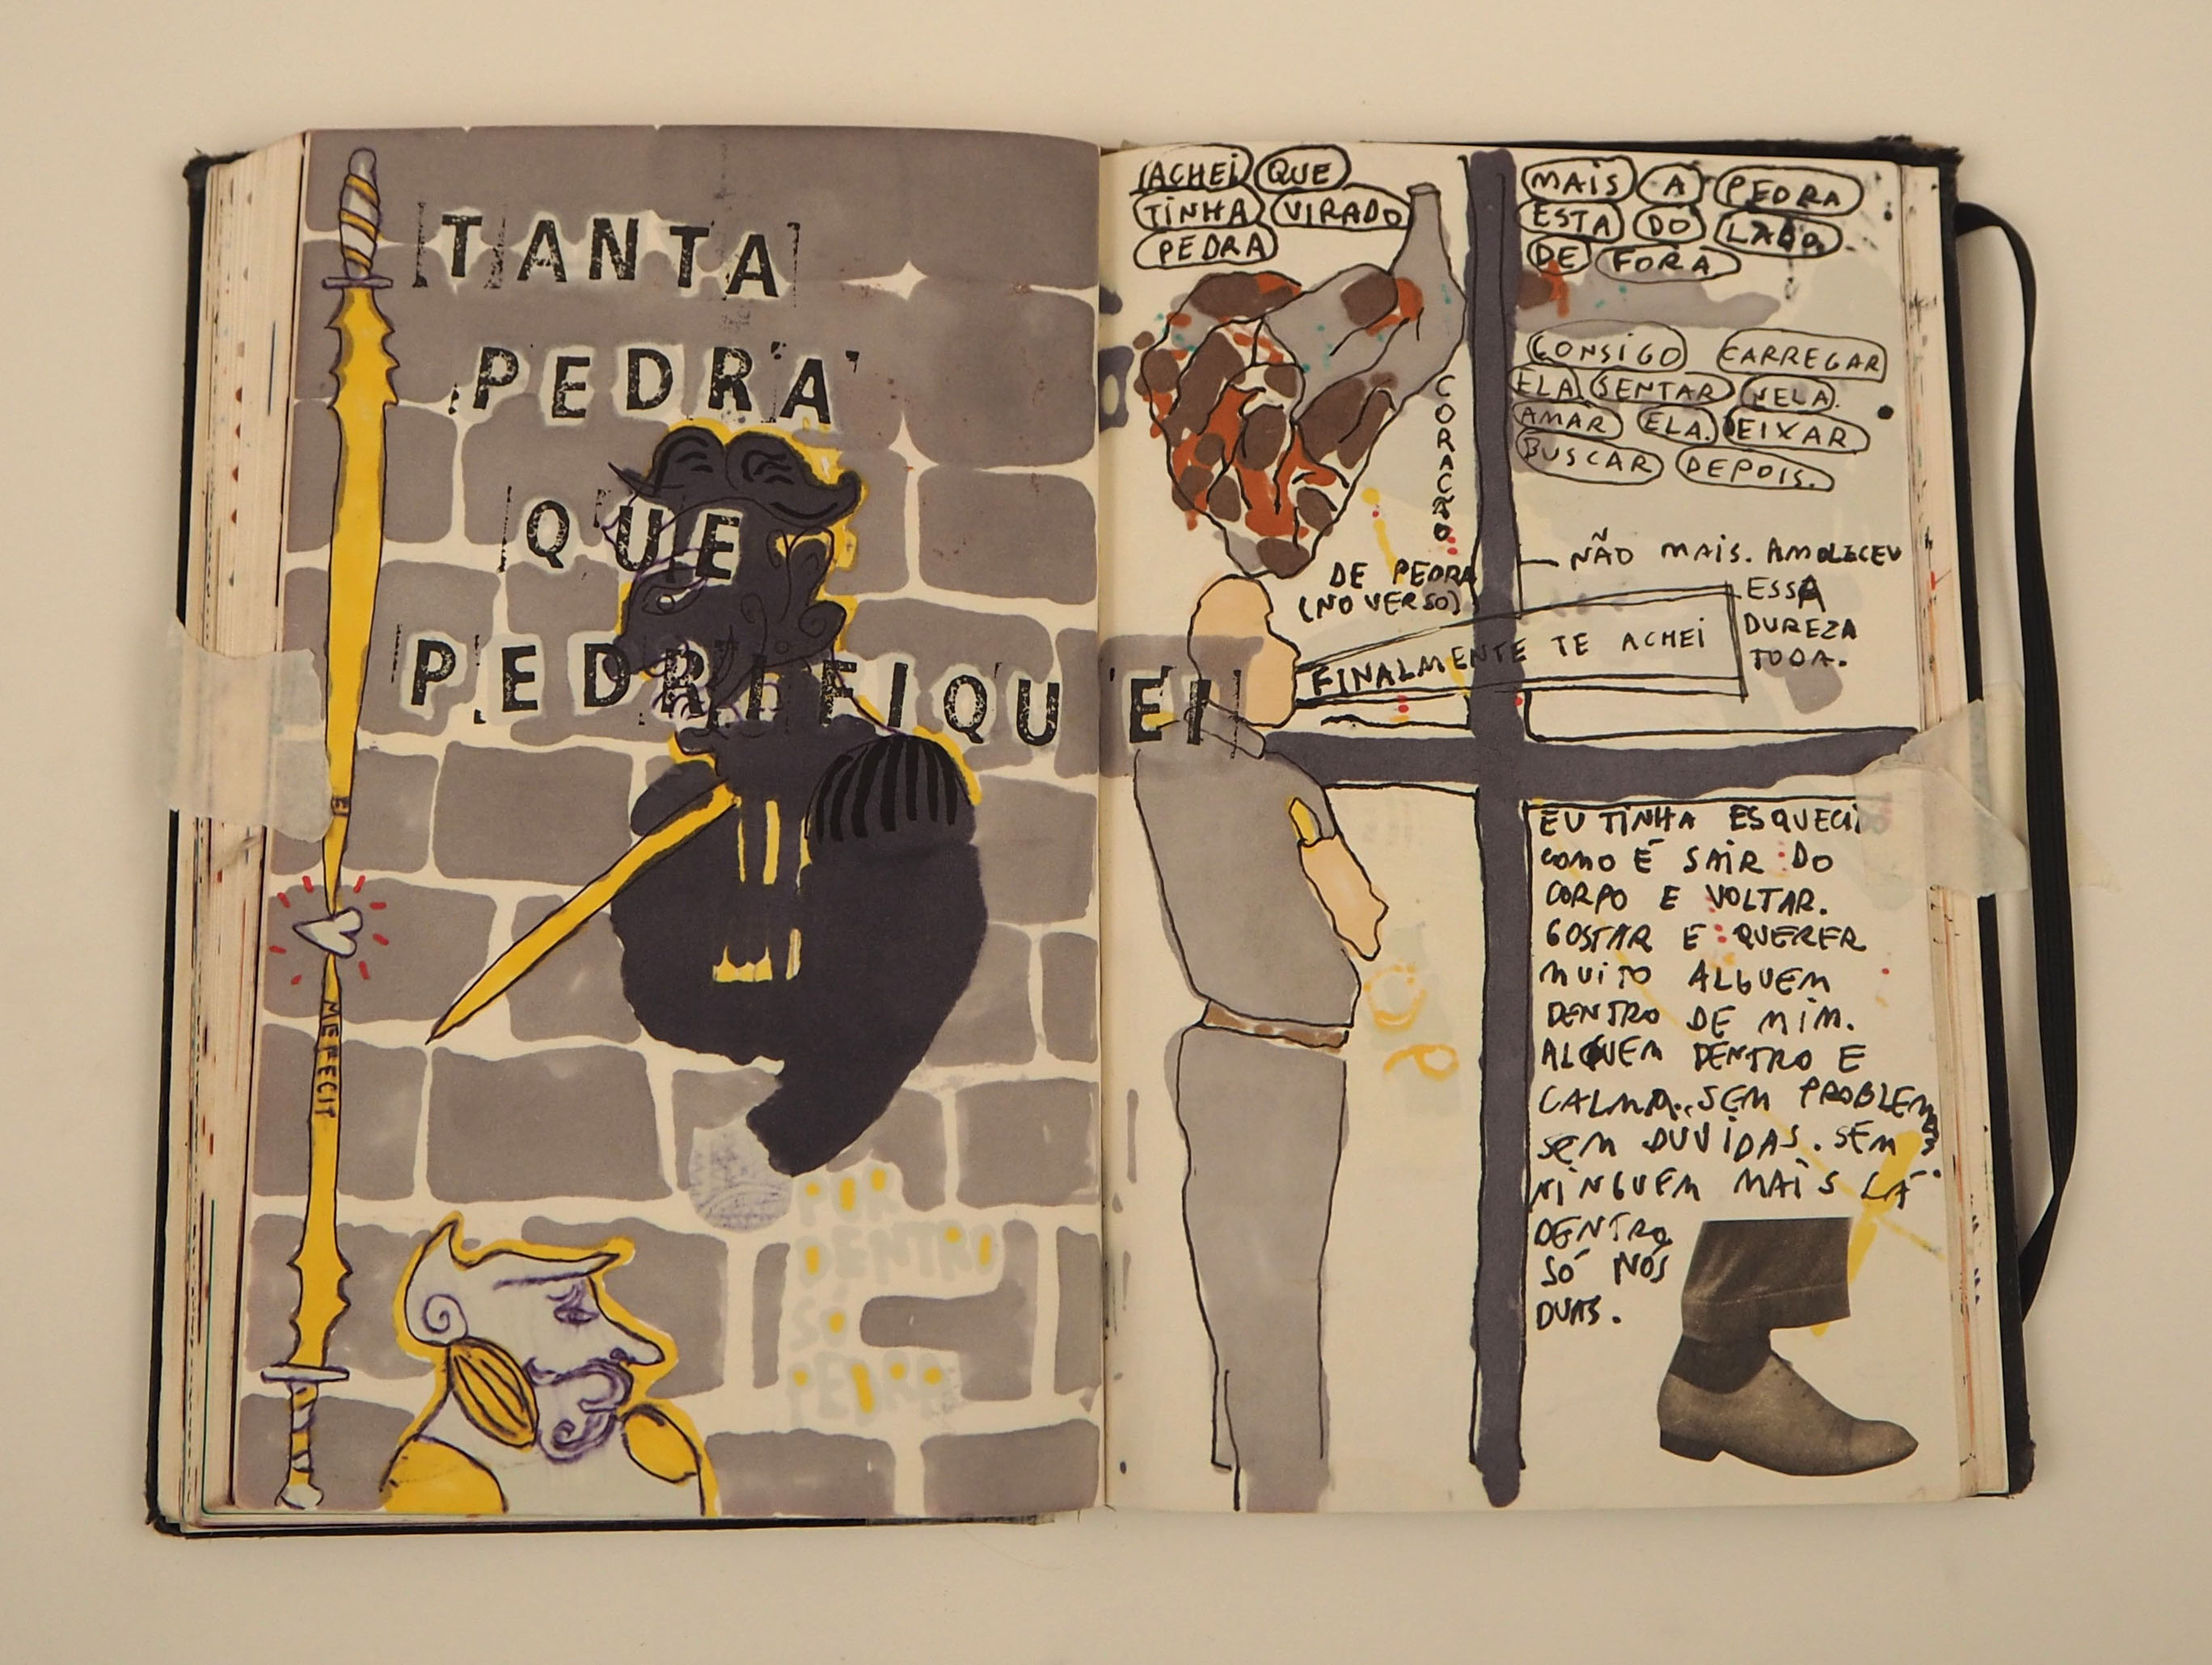 TANTA
PEDRA
QUE
PEDRIFIQUEI
ME FECIT
POR
DENTRO
SO
PEDRA
ACHEI QUE
TINHA VIRADO
PEDRA
CORAÇÃO
DE PEDRA
(NO VERSO)
FINALMENTE TE ACHEI
MAIS A PEDRA
ESTA DO LADO
DE FORA
CONSIGO CARREGAR
ELA SENTAR NELA.
AMAR ELA. DEIXAR
BUSCAR DEPOIS.
NÃO MAIS. AMOLECEU
ESSA
DUREZA
TODA.
EU TINHA ESQUECIDO
COMO É SAIR DO
CORPO E VOLTAR.
GOSTAR E QUERER
MUITO ALGUEM
DENTRO DE MIM.
ALGUEM DENTRO E
CALMA. SEM PROBLEMAS
SEM DUVIDAS. SEM
NINGUEM MAIS LÁ
DENTRO
SÓ NÓS
DUAS.